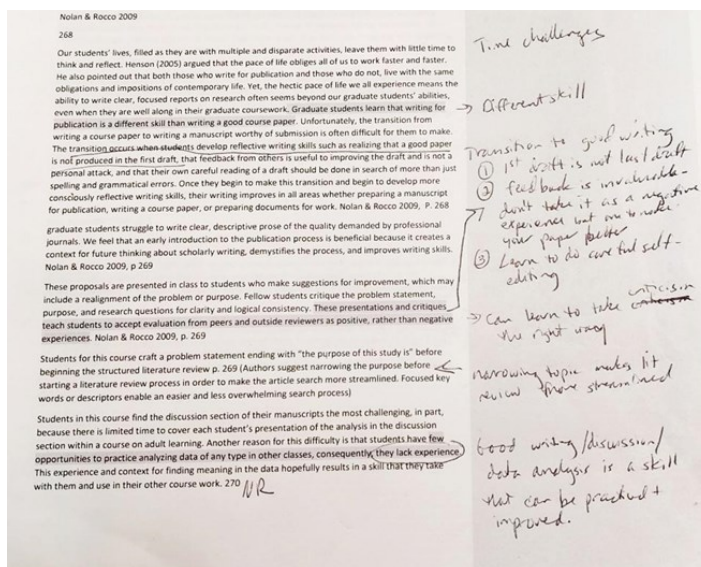 Nolan & Rocco 2009
268
Our students' lives, filled as they are with multiple and disparate activities, leave them with little time to
think and reflect. Henson (2005) argued that the pace of life obliges all of us to work faster and faster.
He also pointed out that both those who write for publication and those who do not, live with the same
obligations and impositions of contemporary life. Yet, the hectic pace of life we all experience means the
ability to write clear, focused reports on research often seems beyond our graduate students' abilities,
even when they are well along in their graduate coursework. Graduate students learn that writing for
publication is a different skill than writing a good course paper. Unfortunately, the transition from
writing a course paper to writing a manuscript worthy of submission is often difficult for them to make.
The transition occurs when students develop reflective writing skills such as realizing that a good paper
is not produced in the first draft, that feedback from others is useful to improving the draft and is not a
personal attack, and that their own careful reading of a draft should be done in search of more than just
spelling and grammatical errors. Once they begin to make this transition and begin to develop more
consciously reflective writing skills, their writing improves in all areas whether preparing a manuscript
for publication, writing a course paper, or preparing documents for work. Nolan & Rocco 2009, P. 268
graduate students struggle to write clear, descriptive prose of the quality demanded by professional
journals. We feel that an early introduction to the publication process is beneficial because it creates a
context for future thinking about scholarly writing, demystifies the process, and improves writing skills.
Nolan & Rocco 2009, p 269
These proposals are presented in class to students who make suggestions for improvement, which may
include a realignment of the problem or purpose. Fellow students critique the problem statement,
purpose, and research questions for clarity and logical consistency. These presentations and critiques
teach students to accept evaluation from peers and outside reviewers as positive, rather than negative
experiences. Nolan & Rocco 2009, p. 269
Students for this course craft a problem statement ending with "the purpose of this study is" before
beginning the structured literature review p. 269 (Authors suggest narrowing the purpose before
starting a literature review process in order to make the article search more streamlined. Focused key
words or descriptors enable an easier and less overwhelming search process)
Students in this course find the discussion section of their manuscripts the most challenging, in part,
because there is limited time to cover each student's presentation of the analysis in the discussion
section within a course on adult learning. Another reason for this difficulty is that students have few
opportunities to practice analyzing data of any type in other classes, consequently, they lack experience.
This experience and context for finding meaning in the data hopefully results in a skill that they take
with them and use in their other course work. 270 NR
Time challenges
→ Different skill
Transition to good writing
① 1st draft is not last draft
② feedback is invaluable-
don't take it as a negative
experience but one to make
your paper better
③ Learn to do careful self-
editing
criticism
→ Can learn to take
the right way
narrowing topic makes lit
review more streamlined
Good writing/discussion/
data analysis is a skill
that can be practiced +
improved.